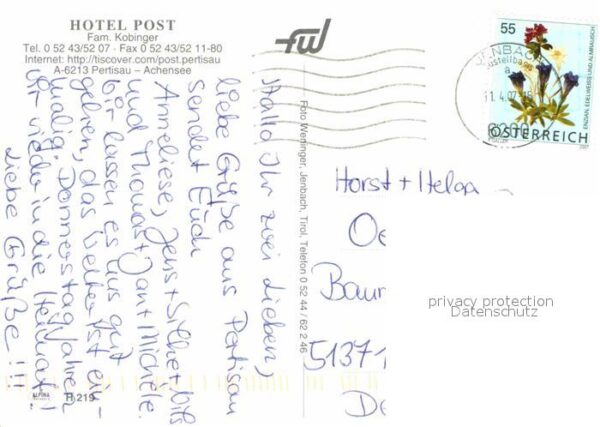 HOTEL POST
Fam. Kobinger
Tel. 0 52 43/52 07 · Fax 0 52 43/52 11-80
Internet: http://tiscover.com/post.pertisau
A-6213 Pertisau – Achensee
fwl
Hallo Ihr zwei Lieben,
liebe Grüße aus Pertisau
sendet Euch
Anneliese, Jens + Silke + Nils
und Thomas + Jan + Michèle.
Wir lassen es uns gut
gehen, das Wetter ist ein-
malig. Donnerstag fahren
wir wieder in die Heimat!
Liebe Grüße!!!
Foto Werlinger, Jenbach, Tirol, Telefon 0 52 44 / 62 2 46
ALPINA
H 219
55
ENZIAN, EDELWEISS UND ALMRAUSCH
ÖSTERREICH
2007
JENBACH
11.4.07
6200
Horst + Helga
Oe
Baum
51371
De
privacy protection
Datenschutz